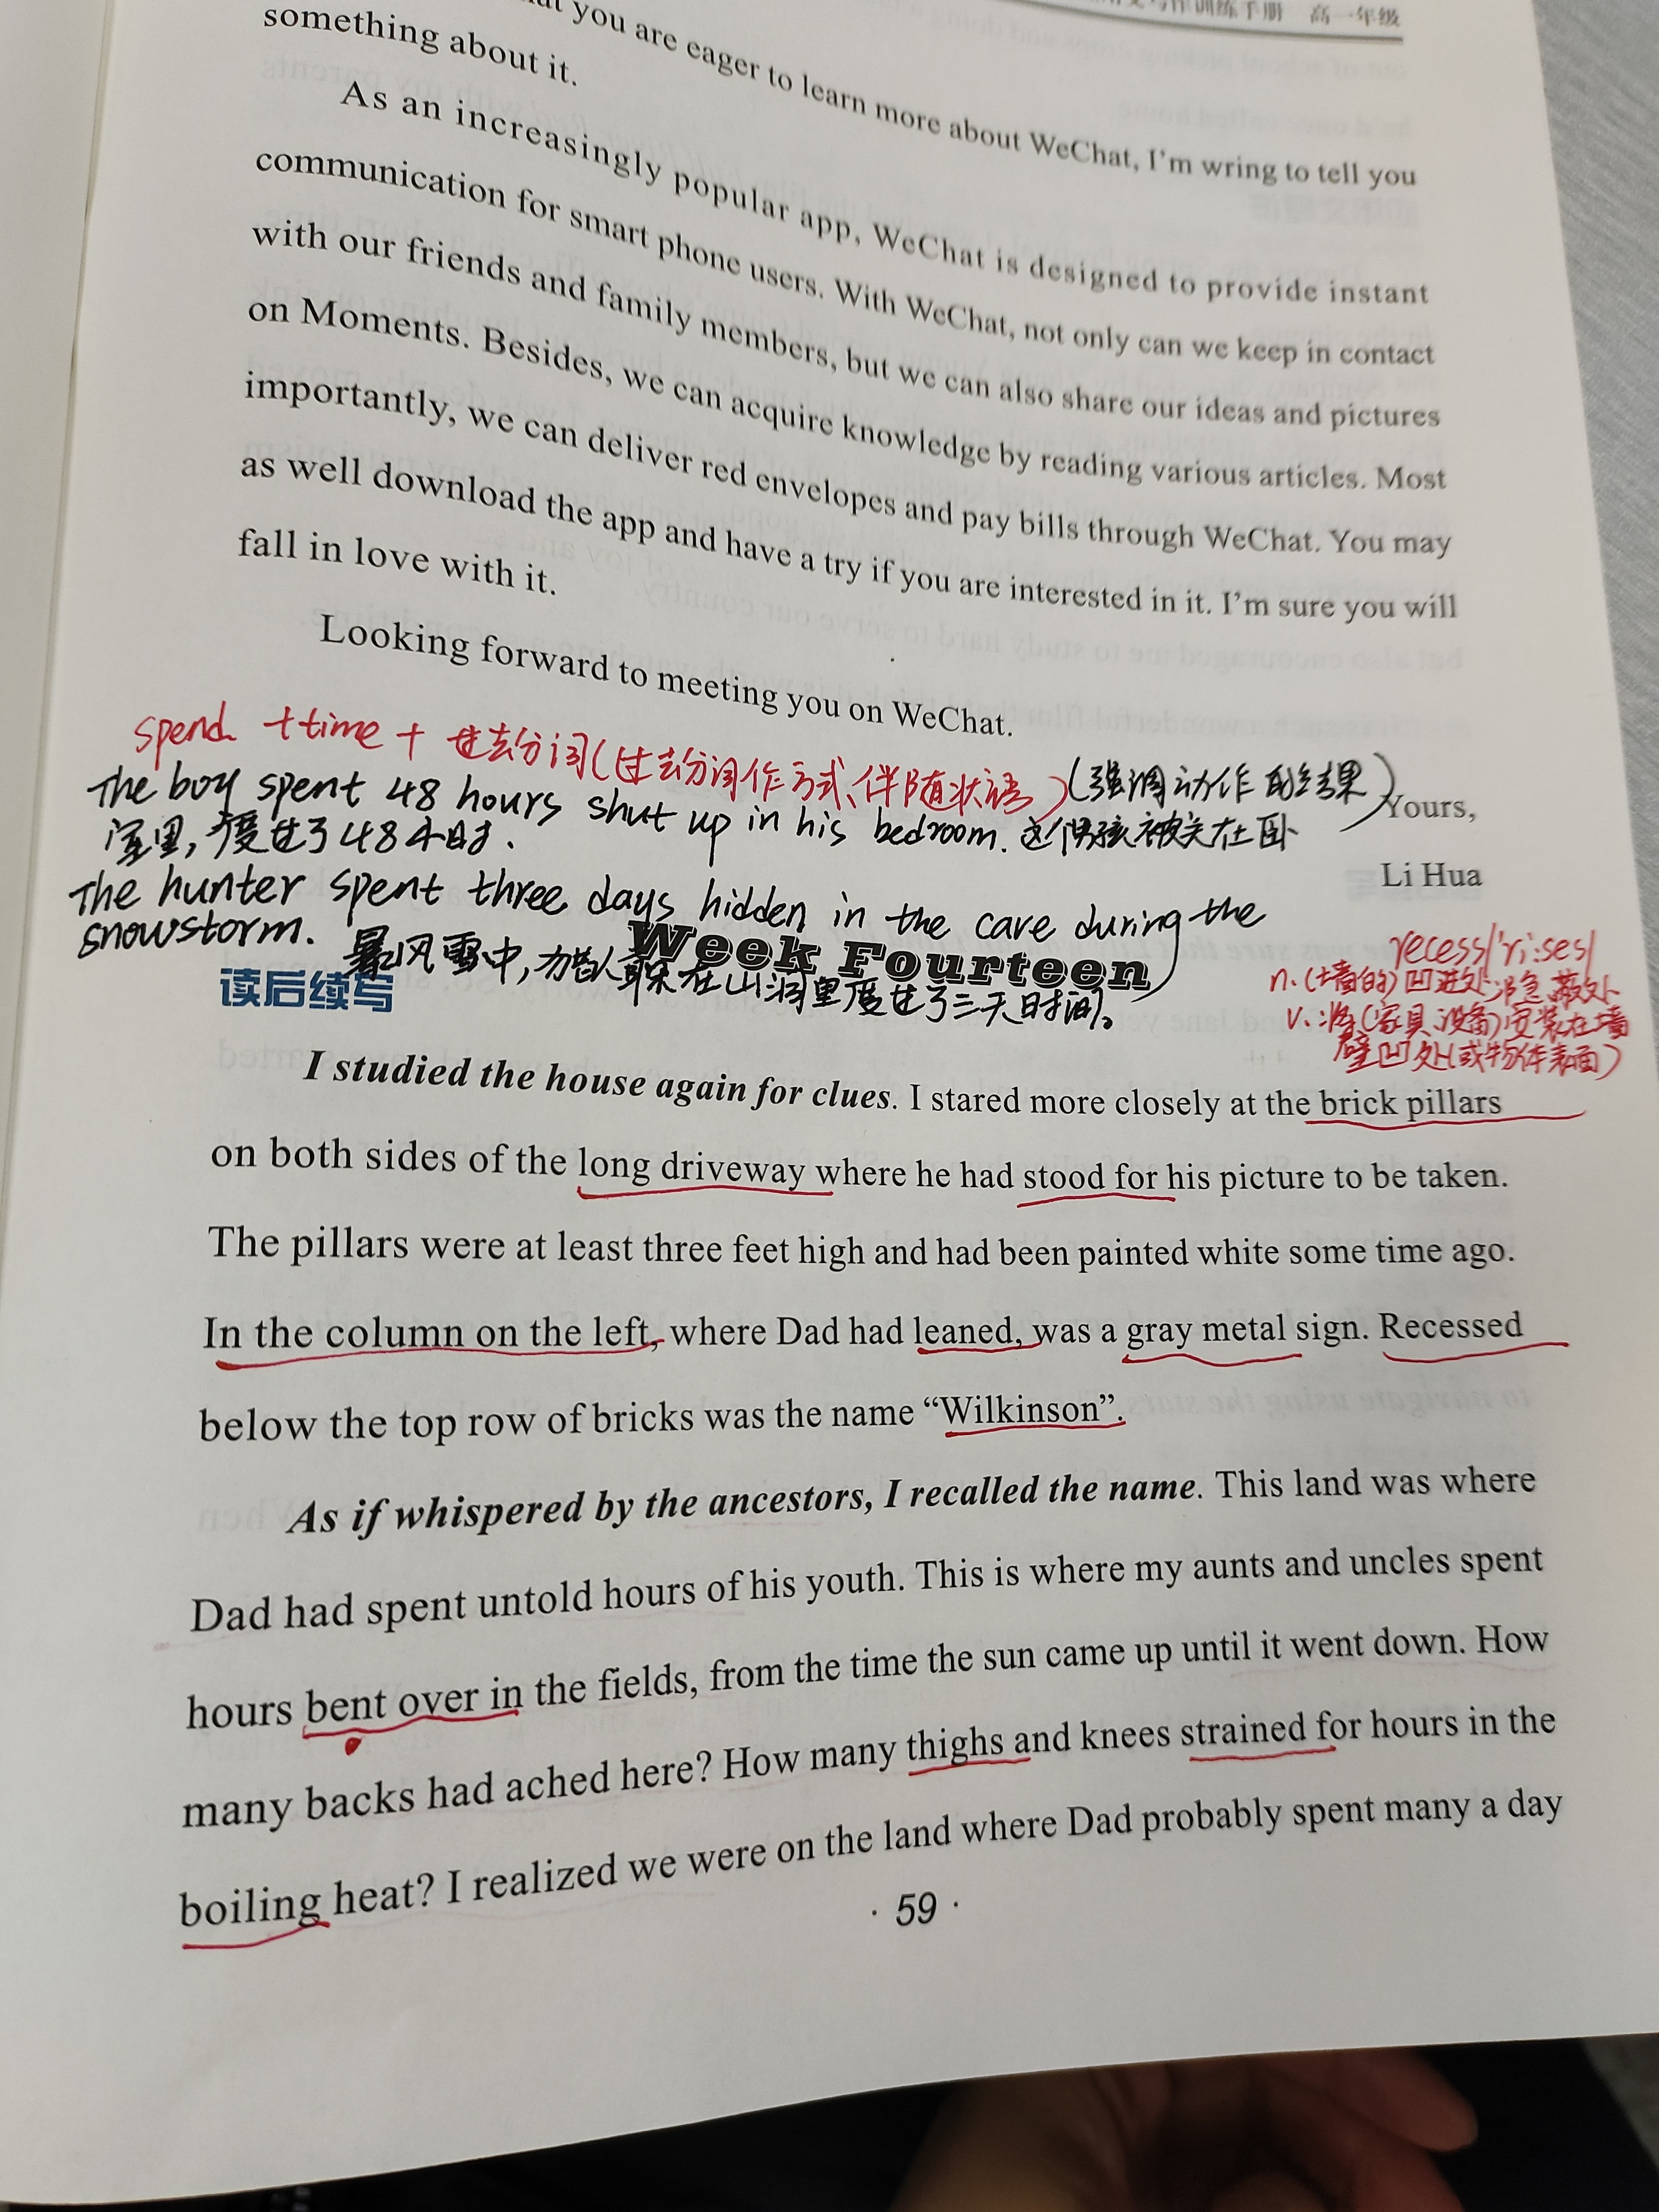 训练手册 高一年级
you are eager to learn more about WeChat, I'm wring to tell you
something about it.
As an increasingly popular app, WeChat is designed to provide instant
communication for smart phone users. With WeChat, not only can we keep in contact
with our friends and family members, but we can also share our ideas and pictures
on Moments. Besides, we can acquire knowledge by reading various articles. Most
importantly, we can deliver red envelopes and pay bills through WeChat. You may
as well download the app and have a try if you are interested in it. I'm sure you will
fall in love with it.
Looking forward to meeting you on WeChat.
spend +time + 过去分词(过去分词作方式、伴随状语)(强调动作的结果)
Yours,
The boy spent 48 hours shut up in his bedroom. 这个男孩被关在卧
室里,度过了48小时.
Li Hua
The hunter spent three days hidden in the cave during the
snowstorm. 暴风雪中,猎人躲在山洞里度过了三天时间。
Week Fourteen
读后续写
recess/ri:ses/
n.(墙的)凹进处,隐蔽处
v.将(家具、设备)安装在墙
壁凹处(或物体表面)
I studied the house again for clues. I stared more closely at the brick pillars
on both sides of the long driveway where he had stood for his picture to be taken.
The pillars were at least three feet high and had been painted white some time ago.
In the column on the left, where Dad had leaned, was a gray metal sign. Recessed
below the top row of bricks was the name “Wilkinson”.
As if whispered by the ancestors, I recalled the name. This land was where
Dad had spent untold hours of his youth. This is where my aunts and uncles spent
hours bent over in the fields, from the time the sun came up until it went down. How
many backs had ached here? How many thighs and knees strained for hours in the
boiling heat? I realized we were on the land where Dad probably spent many a day
· 59 ·